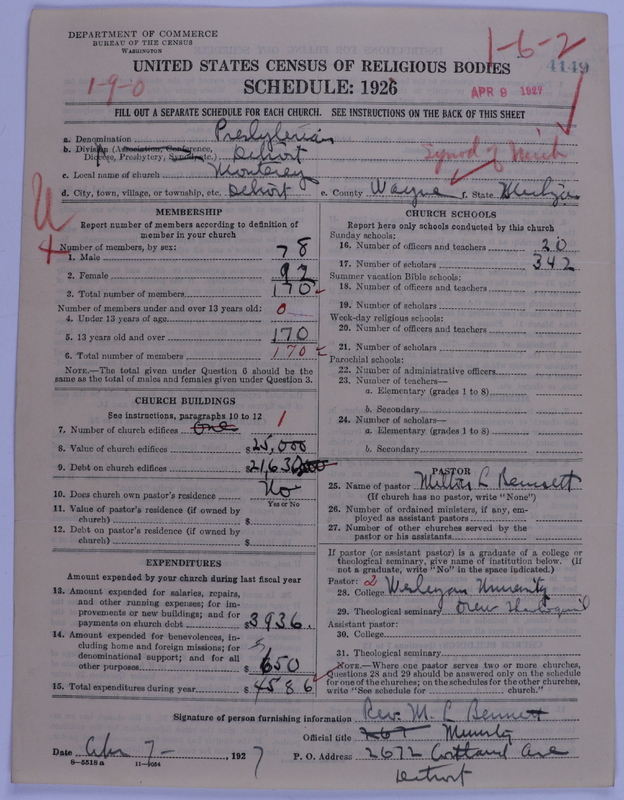 DEPARTMENT OF COMMERCE
BUREAU OF THE CENSUS
WASHINGTON
1-6-2
4149
UNITED STATES CENSUS OF RELIGIOUS BODIES
1-9-0
SCHEDULE: 1926
APR 9 1927
FILL OUT A SEPARATE SCHEDULE FOR EACH CHURCH. SEE INSTRUCTIONS ON THE BACK OF THIS SHEET
a. Denomination Presbyterian
b. Division (Association, Conference, Diocese, Presbytery, Synod, etc.) Detroit
Synod of Mich
c. Local name of church Monterey
d. City, town, village, or township, etc. Detroit e. County Wayne f. State Michigan
MEMBERSHIP
Report number of members according to definition of member in your church
Number of members, by sex:
1. Male 78
2. Female 92
3. Total number of members 170
Number of members under and over 13 years old:
4. Under 13 years of age 0
5. 13 years old and over 170
6. Total number of members 170
NOTE.—The total given under Question 6 should be the same as the total of males and females given under Question 3.
CHURCH BUILDINGS
See instructions, paragraphs 10 to 12
7. Number of church edifices One 1
8. Value of church edifices $25,000
9. Debt on church edifices $21,63
10. Does church own pastor's residence No
Yes or No
11. Value of pastor's residence (if owned by church) $
12. Debt on pastor's residence (if owned by church) $
EXPENDITURES
Amount expended by your church during last fiscal year
13. Amount expended for salaries, repairs, and other running expenses; for improvements or new buildings; and for payments on church debt $3936.
14. Amount expended for benevolences, including home and foreign missions; for denominational support; and for all other purposes $650
15. Total expenditures during year $4586
CHURCH SCHOOLS
Report here only schools conducted by this church
Sunday schools:
16. Number of officers and teachers 20
17. Number of scholars 342
Summer vacation Bible schools:
18. Number of officers and teachers
19. Number of scholars
Week-day religious schools:
20. Number of officers and teachers
21. Number of scholars
Parochial schools:
22. Number of administrative officers
23. Number of teachers—
a. Elementary (grades 1 to 8)
b. Secondary
24. Number of scholars—
a. Elementary (grades 1 to 8)
b. Secondary
PASTOR
25. Name of pastor Milton L Bennett
(If church has no pastor, write "None")
26. Number of ordained ministers, if any, employed as assistant pastors
27. Number of other churches served by the pastor or his assistants
If pastor (or assistant pastor) is a graduate of a college or theological seminary, give name of institution below. (If not a graduate, write "No" in the space indicated.)
Pastor: 2
28. College Wesleyan University
29. Theological seminary Drew Theological
Assistant pastor:
30. College
31. Theological seminary
NOTE.—Where one pastor serves two or more churches, Questions 28 and 29 should be answered only on the schedule for one of the churches; on the schedules for the other churches, write "See schedule for church."
Signature of person furnishing information Rev. M. L Bennett
Official title 267 Minister
Date Apr 7- , 1927
P. O. Address 2672 Cortland Ave
8-5518 a 11-9054
Detroit